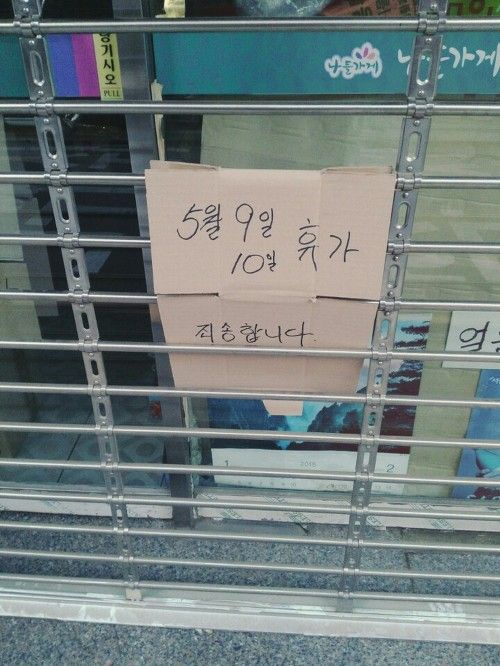 당기시오
PULL
나들가게
나들가게
5월 9일
10일
휴가
죄송합니다.
1
2015
2